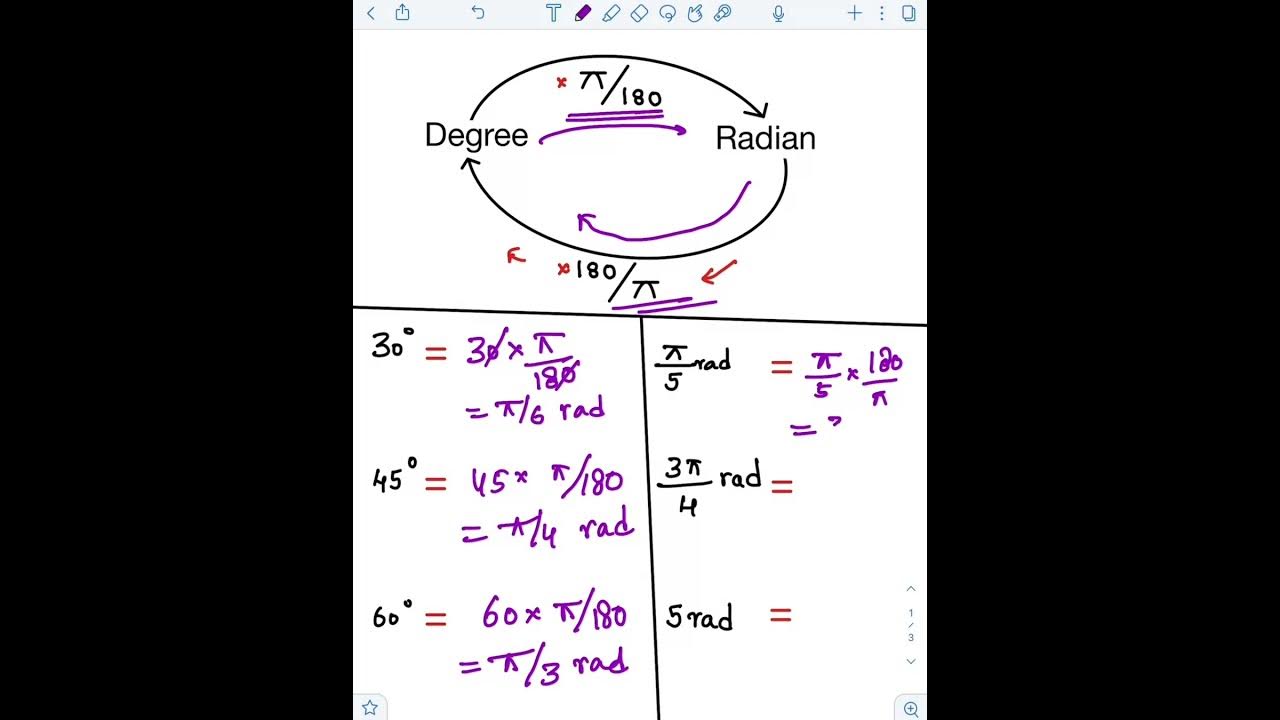 T
× π/180
Degree
Radian
×180/π
30° = 30 × π/180
= π/6 rad
45° = 45 × π/180
= π/4 rad
60° = 60 × π/180
= π/3 rad
π/5 rad = π/5 × 180/π
=
3π/4 rad =
5 rad =
1
/
3